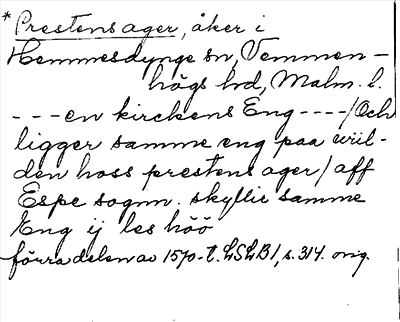 * Prestens ager, åker i
Hemmesdynge sn, Vemmen-
högs hd, Malm. l.
---en kirckens Eng ----/Och
ligger samme eng paa wiil-
den hoss prestens ager/aff
Espe sognn. skyllie samme
Eng ij les höö
förra delen av 1570-t. LSLB1, s. 314. orig.